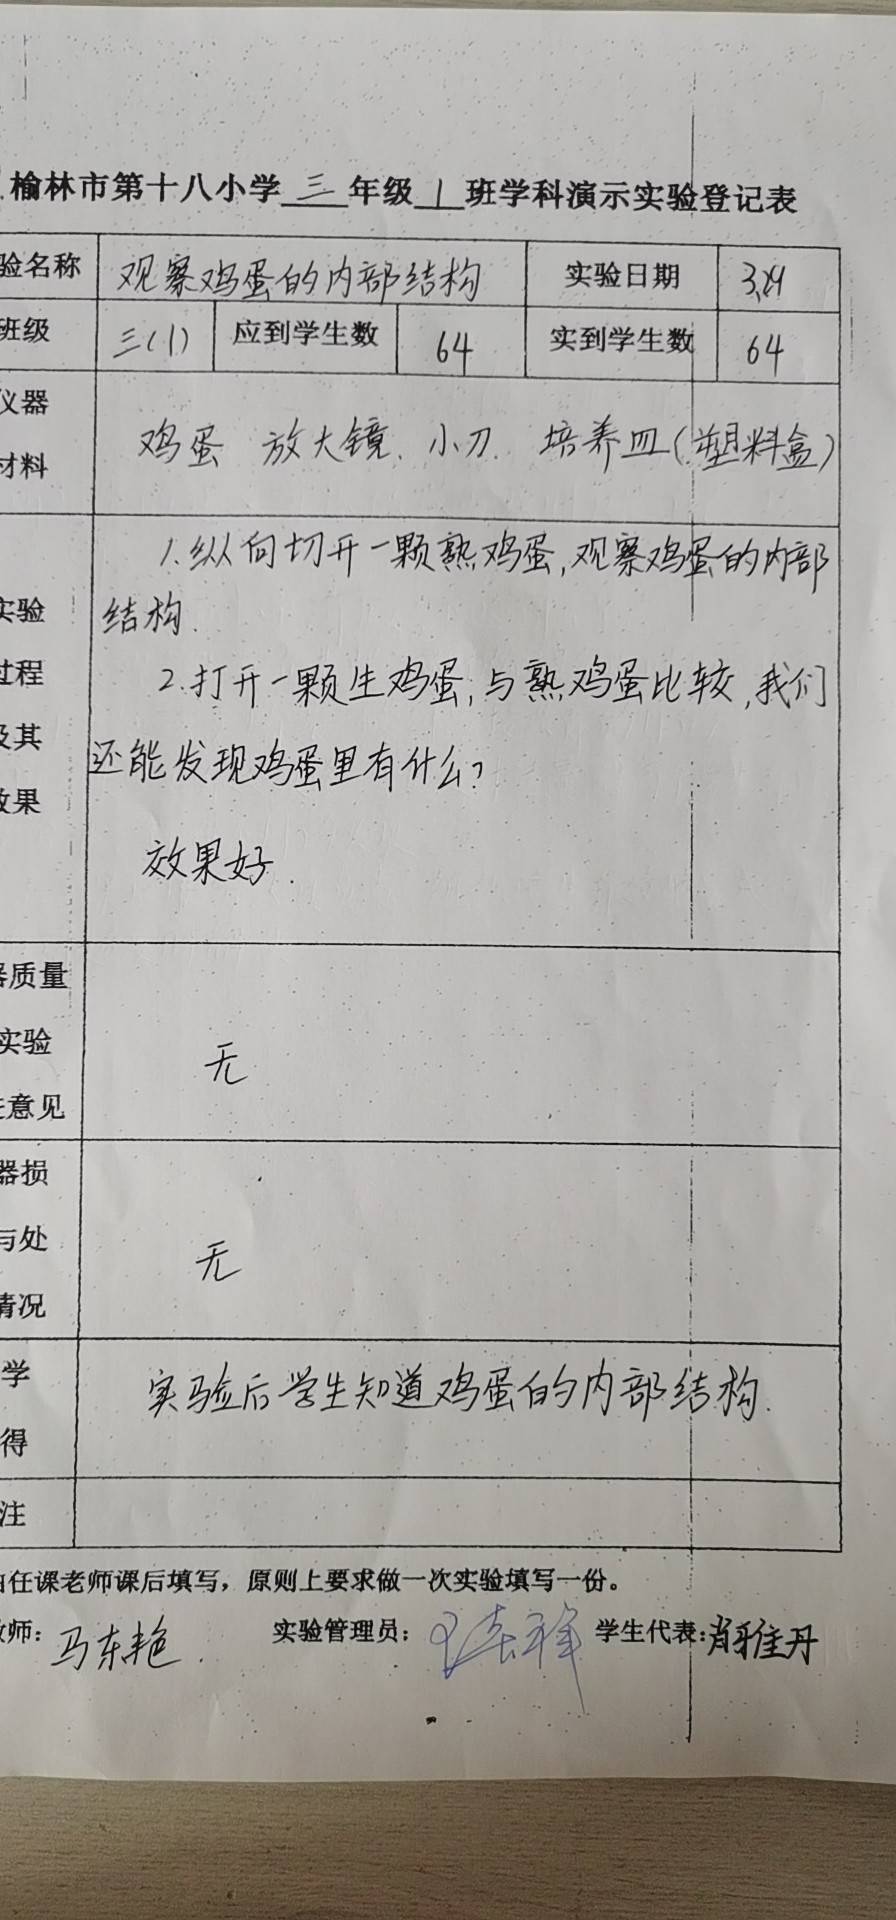 榆林市第十八小学三年级1班学科演示实验登记表
验名称 观察鸡蛋的内部结构 实验日期
班级 三(1) 应到学生数 64 实到学生数 64
仪器
材料
鸡蛋 放大镜. 小刀. 培养皿(塑料盒)
实验
过程
及其
效果
1.纵向切开一颗熟鸡蛋,观察鸡蛋的内部
结构.
2.打开一颗生鸡蛋,与熟鸡蛋比较,我们
还能发现鸡蛋里有什么?
效果好.
器质量
实验
意见
无
器损
与处
情况
无
学
得
实验后学生知道鸡蛋的内部结构.
注
由任课老师课后填写，原则上要求做一次实验填写一份。
教师: 马东艳. 实验管理员: 学生代表: 肖雅丹